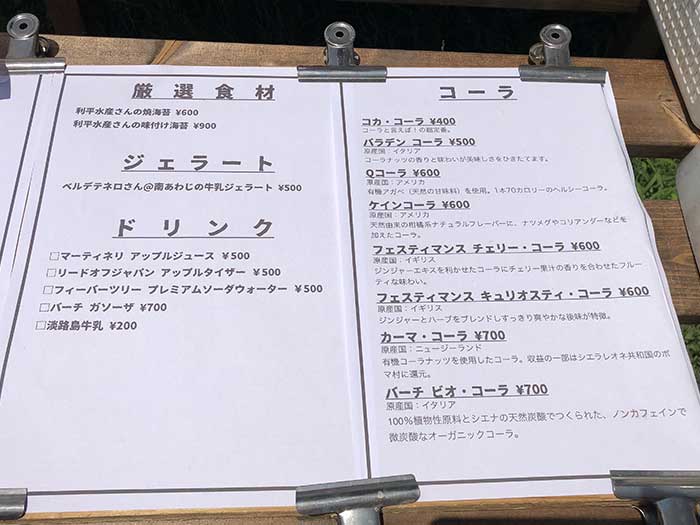 厳選食材
利平水産さんの焼海苔 ¥600
利平水産さんの味付け海苔 ¥900
ジェラート
ベルデテネロさん@南あわじの牛乳ジェラート ¥500
ドリンク
□マーティネリ アップルジュース ¥500
□リードオフジャパン アップルタイザー ¥500
□フィーバーツリー プレミアムソーダウォーター ¥500
□バーチ ガソーザ ¥700
□淡路島牛乳 ¥200
コーラ
コカ・コーラ ¥400
コーラと言えば！の超定番。
バラデン コーラ ¥500
原産国：イタリア
コーラナッツの香りと味わいが美味しさをひきたてます。
Qコーラ ¥600
原産国：アメリカ
有機アガベ（天然の甘味料）を使用。1本70カロリーのヘルシーコーラ。
ケインコーラ ¥600
原産国：アメリカ
天然由来の柑橘系ナチュラルフレーバーに、ナツメグやコリアンダーなどを
加えたコーラ。
フェスティマンス チェリー・コーラ ¥600
原産国：イギリス
ジンジャーエキスを利かせたコーラにチェリー果汁の香りを合わせたフルー
ティな味わい。
フェスティマンス キュリオスティ・コーラ ¥600
原産国：イギリス
ジンジャーとハーブをブレンドしすっきり爽やかな後味が特徴。
カーマ・コーラ ¥700
原産国：ニュージーランド
有機コーラナッツを使用したコーラ。収益の一部はシエラレオネ共和国のボ
マ村に還元。
バーチ ビオ・コーラ ¥700
原産国：イタリア
100％植物性原料とシエナの天然炭酸でつくられた、ノンカフェインで
微炭酸なオーガニックコーラ。